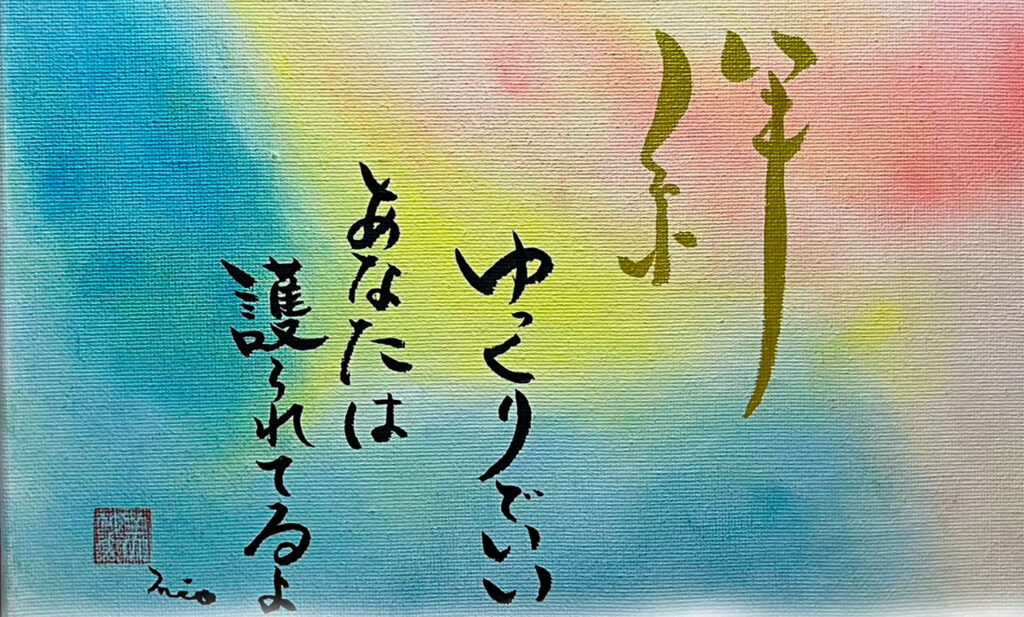 絆
ゆっくりでいい
あなたは
護られてるよ
mio